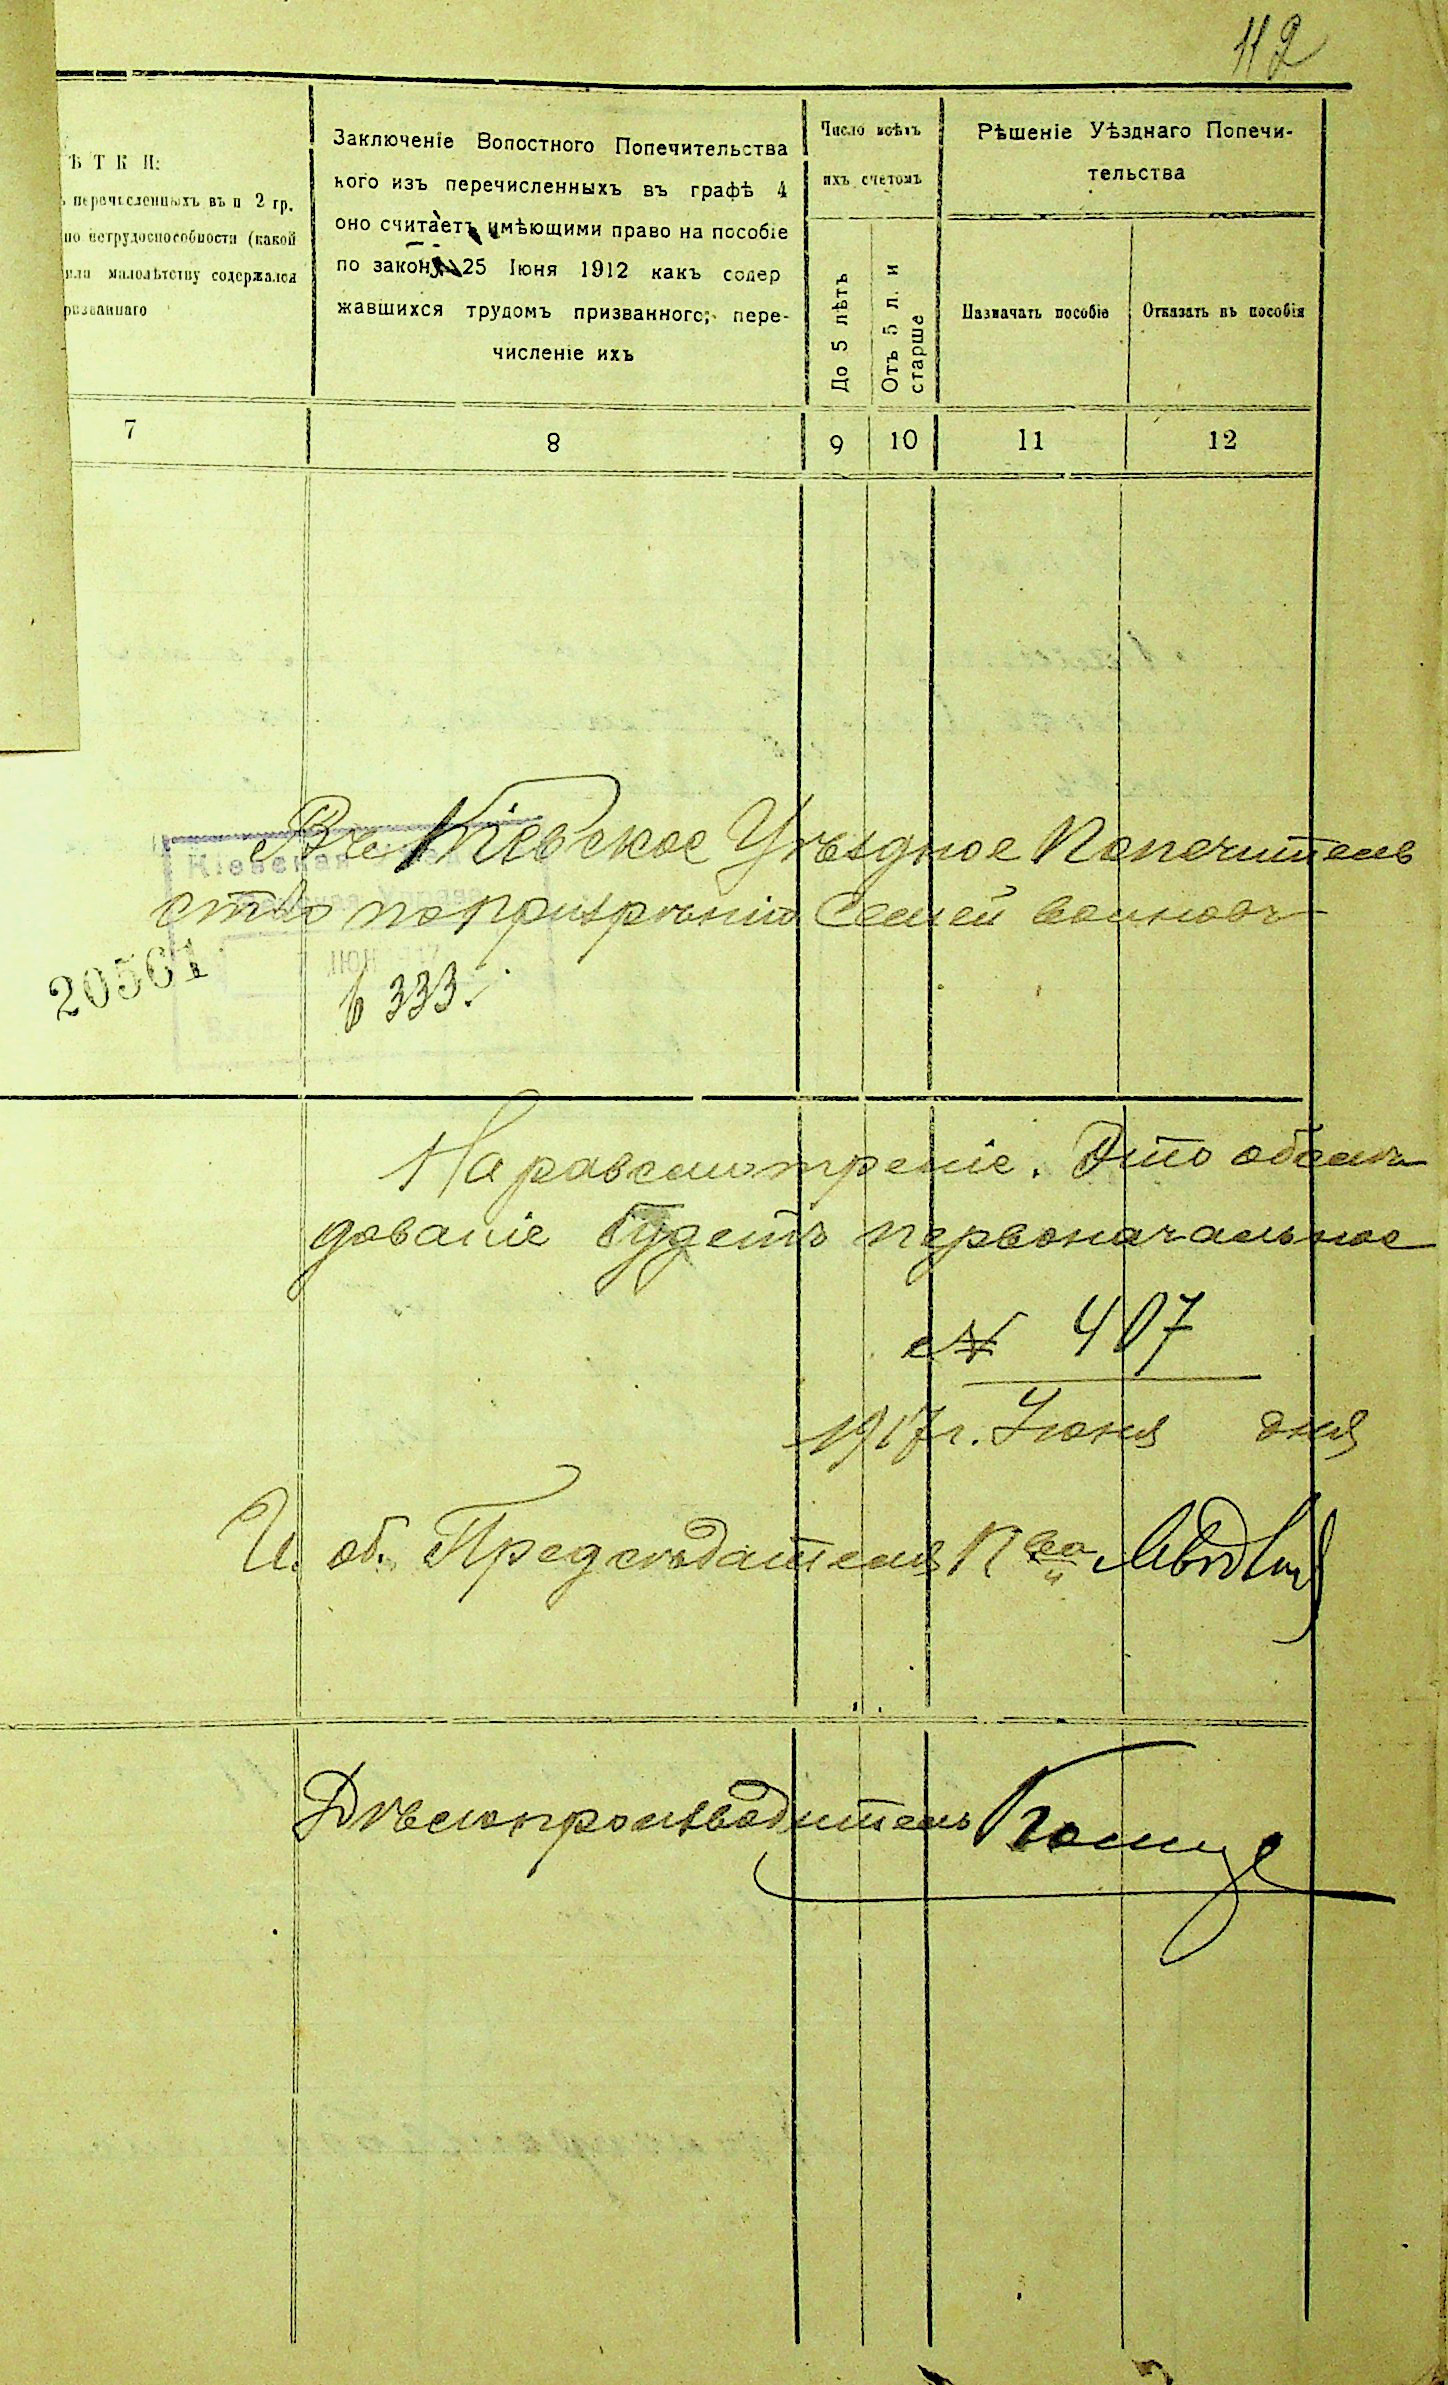 112
ѢТКИ:
перечисленныхъ въ п 2 гр.
по нетрудоспособности (какой
или малолѣтству содержался
ризваннаго
Заключеніе Волостного Попечительства
кого изъ перечисленныхъ въ графѣ 4
оно считаетъ имѣющими право на пособіе
по закону 25 Іюня 1912 какъ содер
жавшихся трудомъ призванного; пере-
численіе ихъ
Число всѣхъ
ихъ счетомъ
До 5 лѣтъ
Отъ 5 л. и
старше
Рѣшеніе Уѣзднаго Попечи-
тельства
Назначать пособіе
Отказать въ пособія
7 8 9 10 11 12
Въ Кіевское Уѣздное Попечитель
ство по призрѣнію Семей воиновъ
Кіевская
20561
333.
На разсмотреніе. Это обслѣ
дованіе будетъ первоначальное
№ 407
1917 г. Июня дня
И. об. Предсѣдателя П-ва
Дѣлопроизводитель